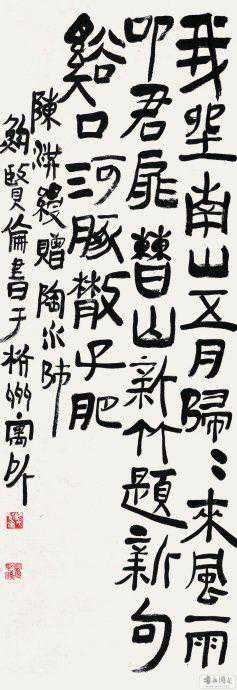 我南山五月歸〻來風雨
叩君扉山新竹題新句
谿口河豚散子肥
陳洪綬贈陶水師
鮑賢倫書于杭州寓所